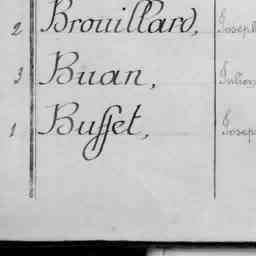 2 Brouillard, Joseph
3 Buan, Julien
1 Busset, Joseph